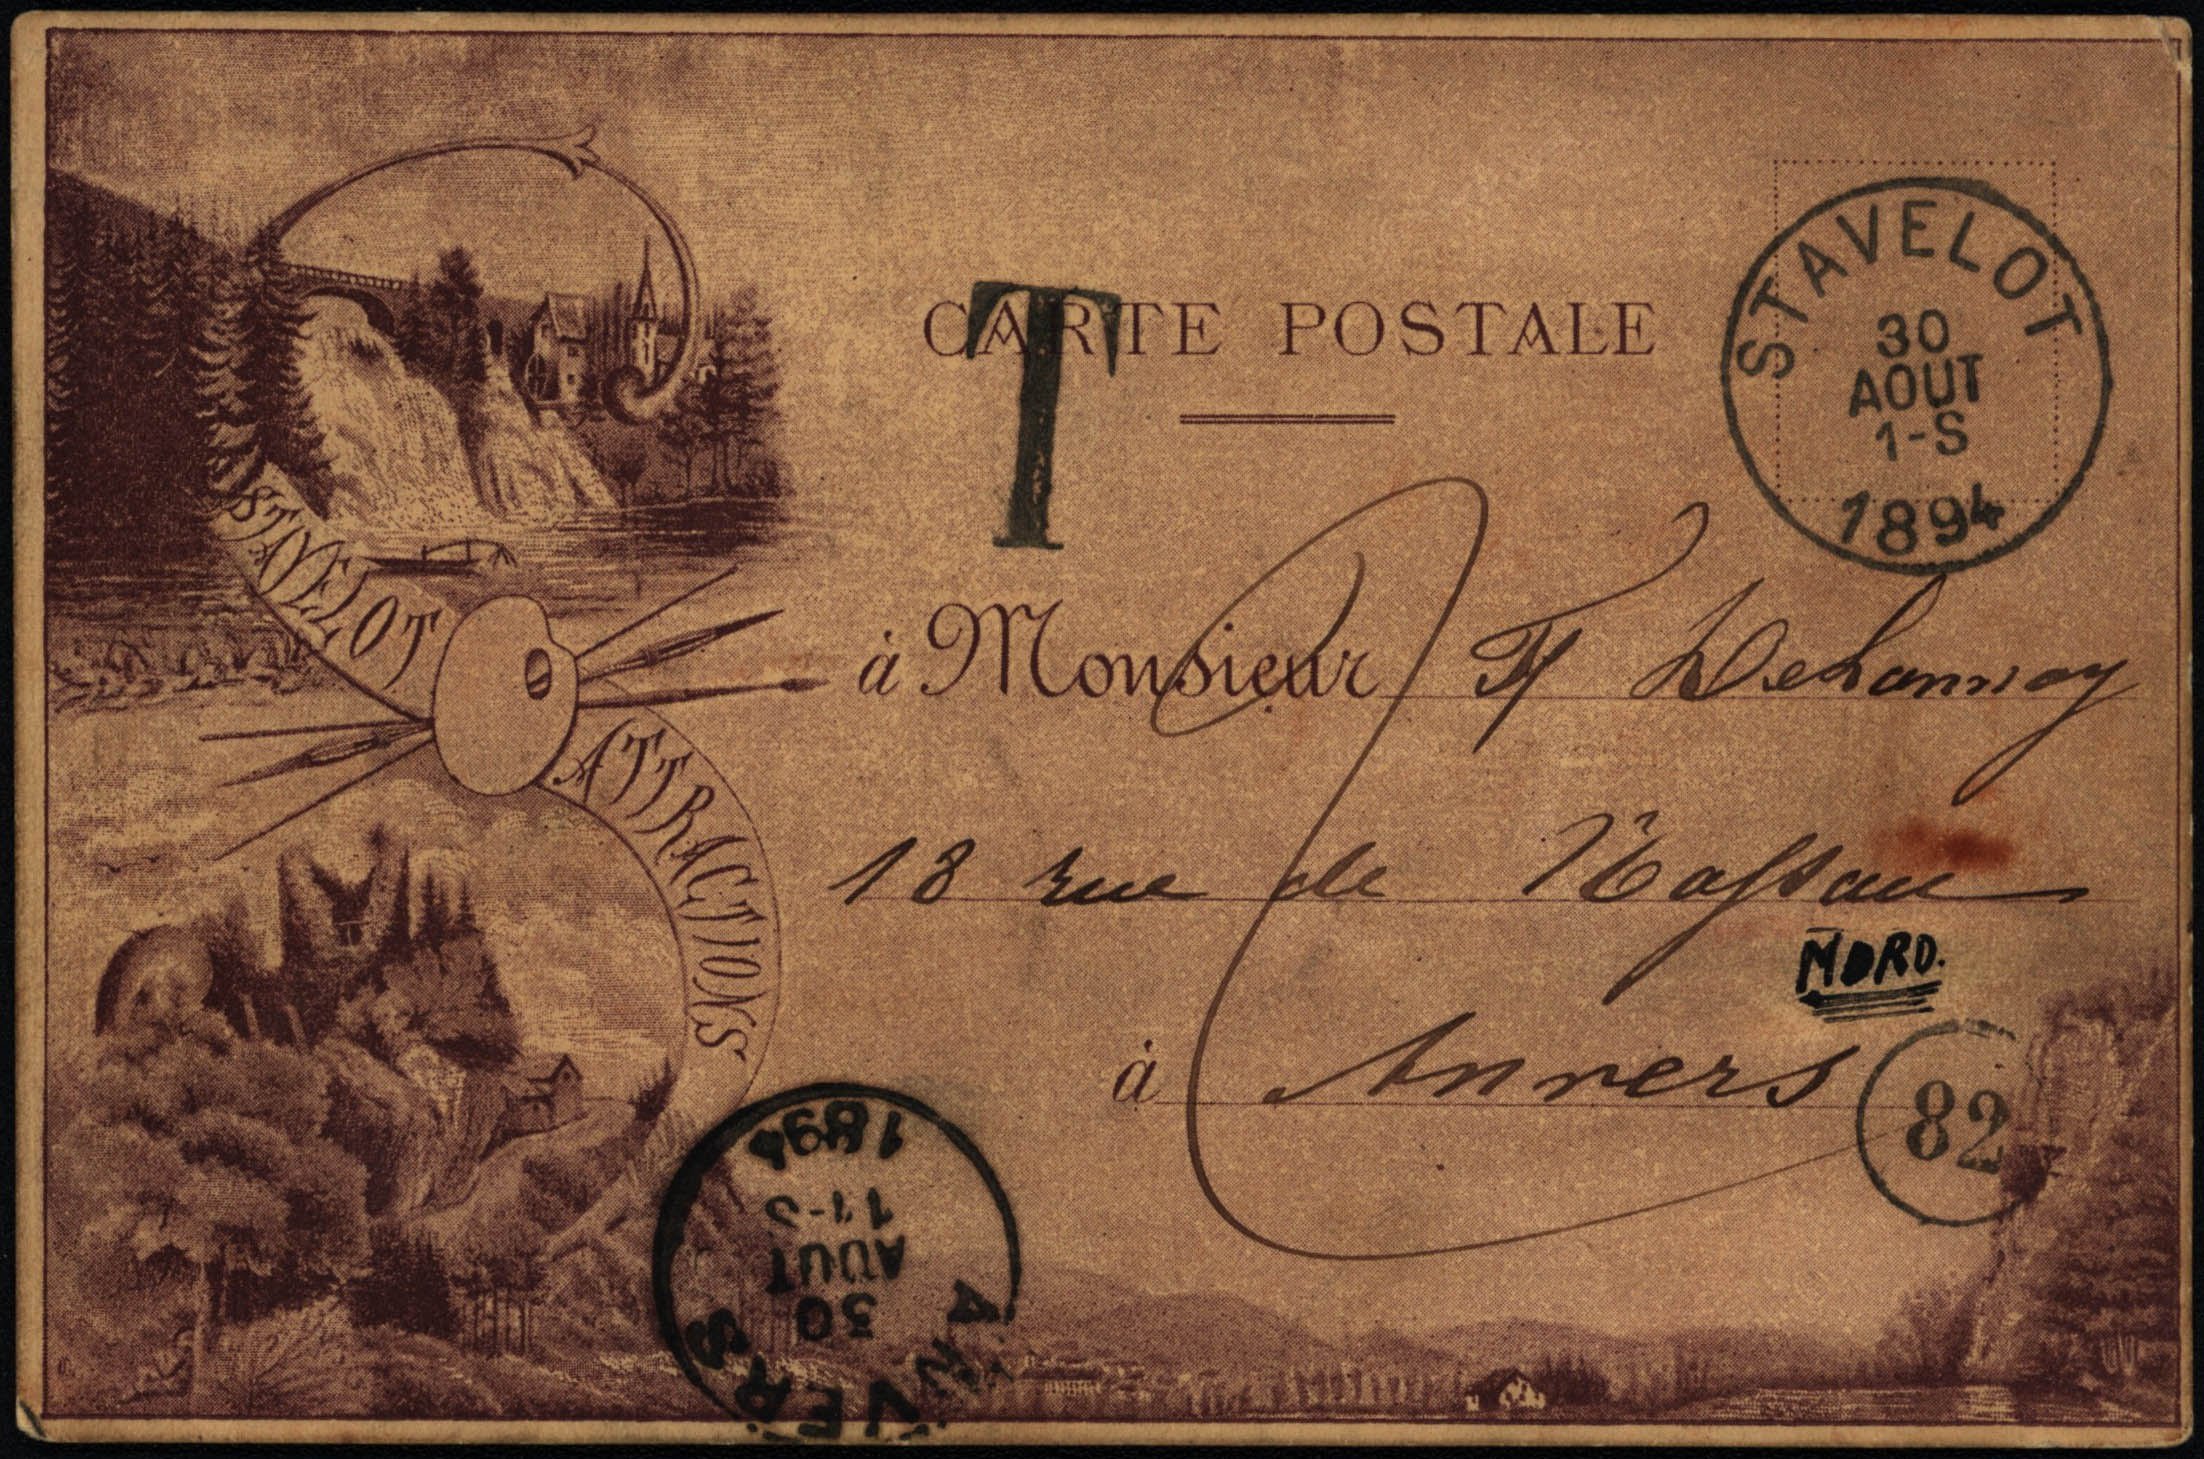 CARTE POSTALE
T
STAVELOT
30
AOUT
1-S
1894
STAVELOT
ATTRACTIONS
à Monsieur F Delannoy
18 rue de Nassau
MDRD.
à Anvers
82
ANVERS
30
AOUT
11-S
1894